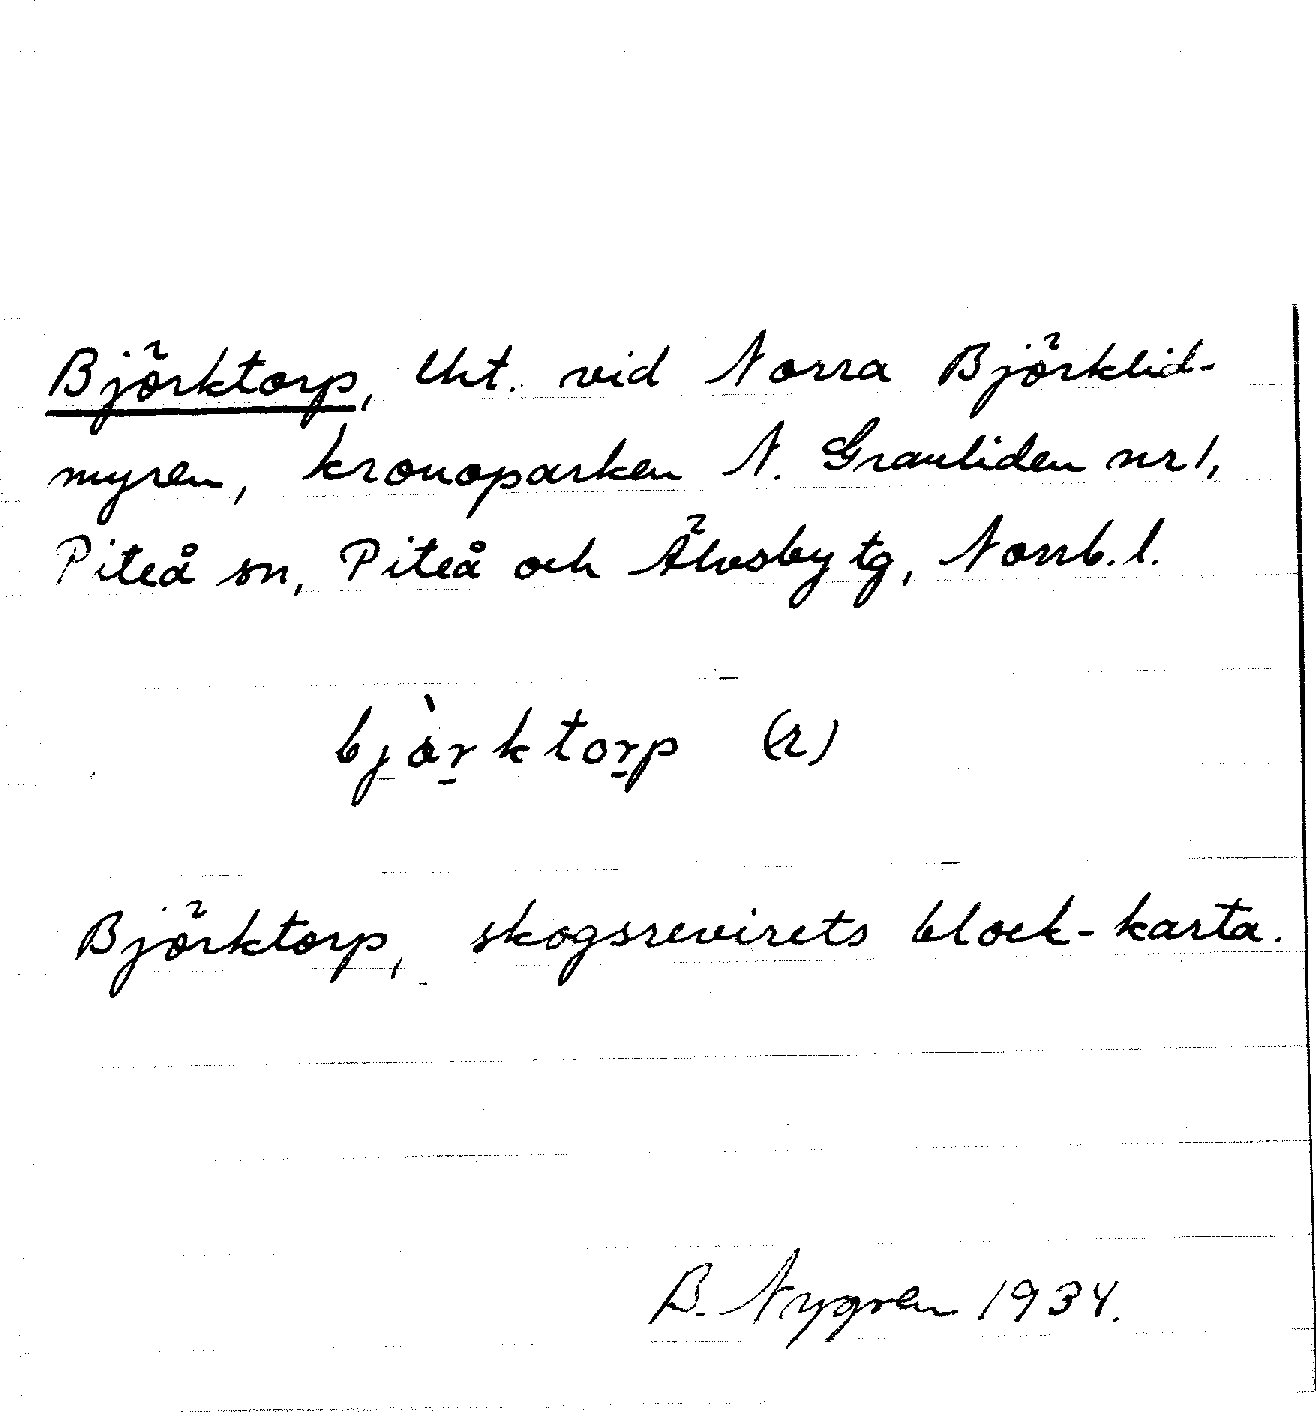 Björktorp, lht. vid Norra Björklid-
myren, kronoparken N. Granliden nr 1,
Piteå sn, Piteå och Älvsby tg, Norrb. l.
bjàrktorp (2)
Björktorp, skogsrevirets block-karta.
B. Nygren 1934.